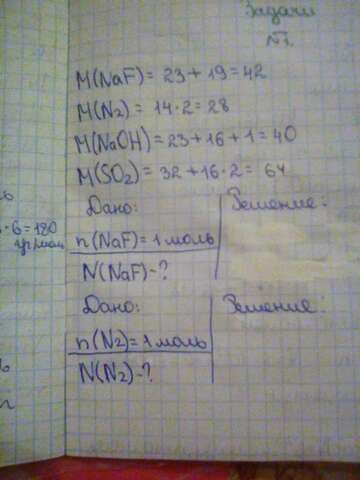 Задачи
№1.
M(NaF) = 23 + 19 = 42
M(N2) = 14 · 2 = 28
M(NaOH) = 23 + 16 + 1 = 40
M(SO2) = 32 + 16 · 2 = 64
Дано: Решение:
· 6 = 180
гр/моль
n(NaF) = 1 моль
N(NaF) - ?
Дано: Решение:
n(N2) = 1 моль
N(N2) - ?